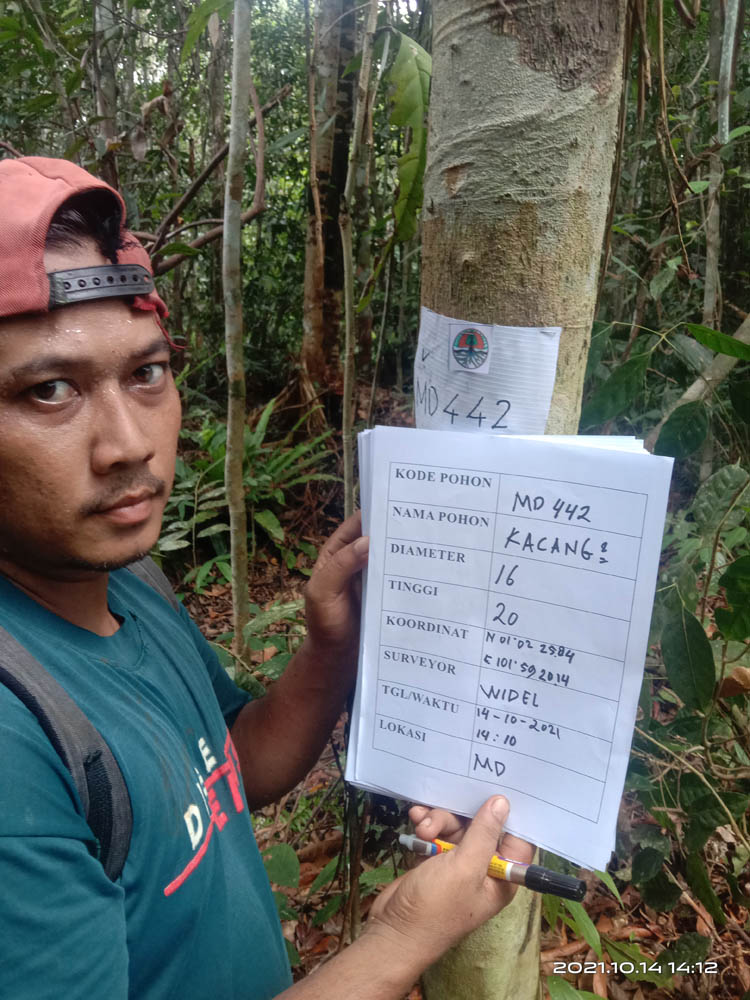 MD 442
KODE POHON MD 442
NAMA POHON KACANG²
DIAMETER 16
TINGGI 20
KOORDINAT N 01°02 25.84
E 101°59 20.14
SURVEYOR WIDEL
TGL/WAKTU 14-10-2021
14:10
LOKASI MD
2021.10.14 14:12